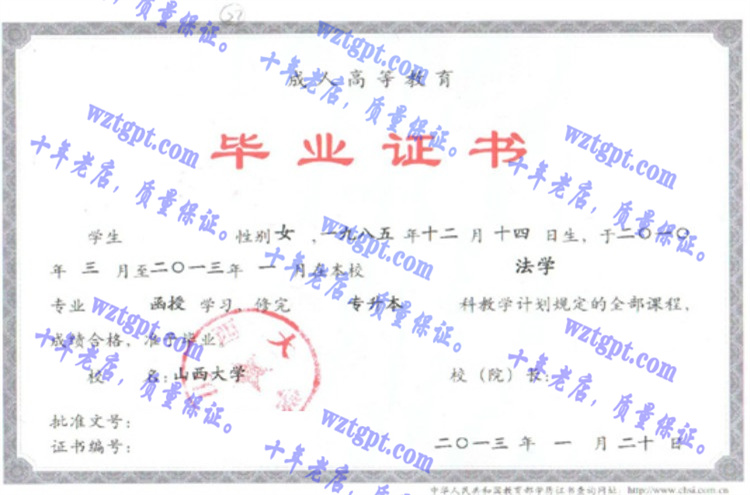 成人高等教育
毕业证书
学生 性别 女 ，一九八五 年 十二 月 十四 日生，于二〇一〇
年 三 月至二〇一三年 一 月在本校 法学
专业 函授 学习，修完 专升本 科教学计划规定的全部课程，
成绩合格，准予毕业。
校 名：山西大学 校（院）长：
批准文号：
证书编号： 二〇一三 年 一 月 二十 日
中华人民共和国教育部学历证书查询网址：http://www.chsi.com.cn
wztgpt.com
十年老店，质量保证。